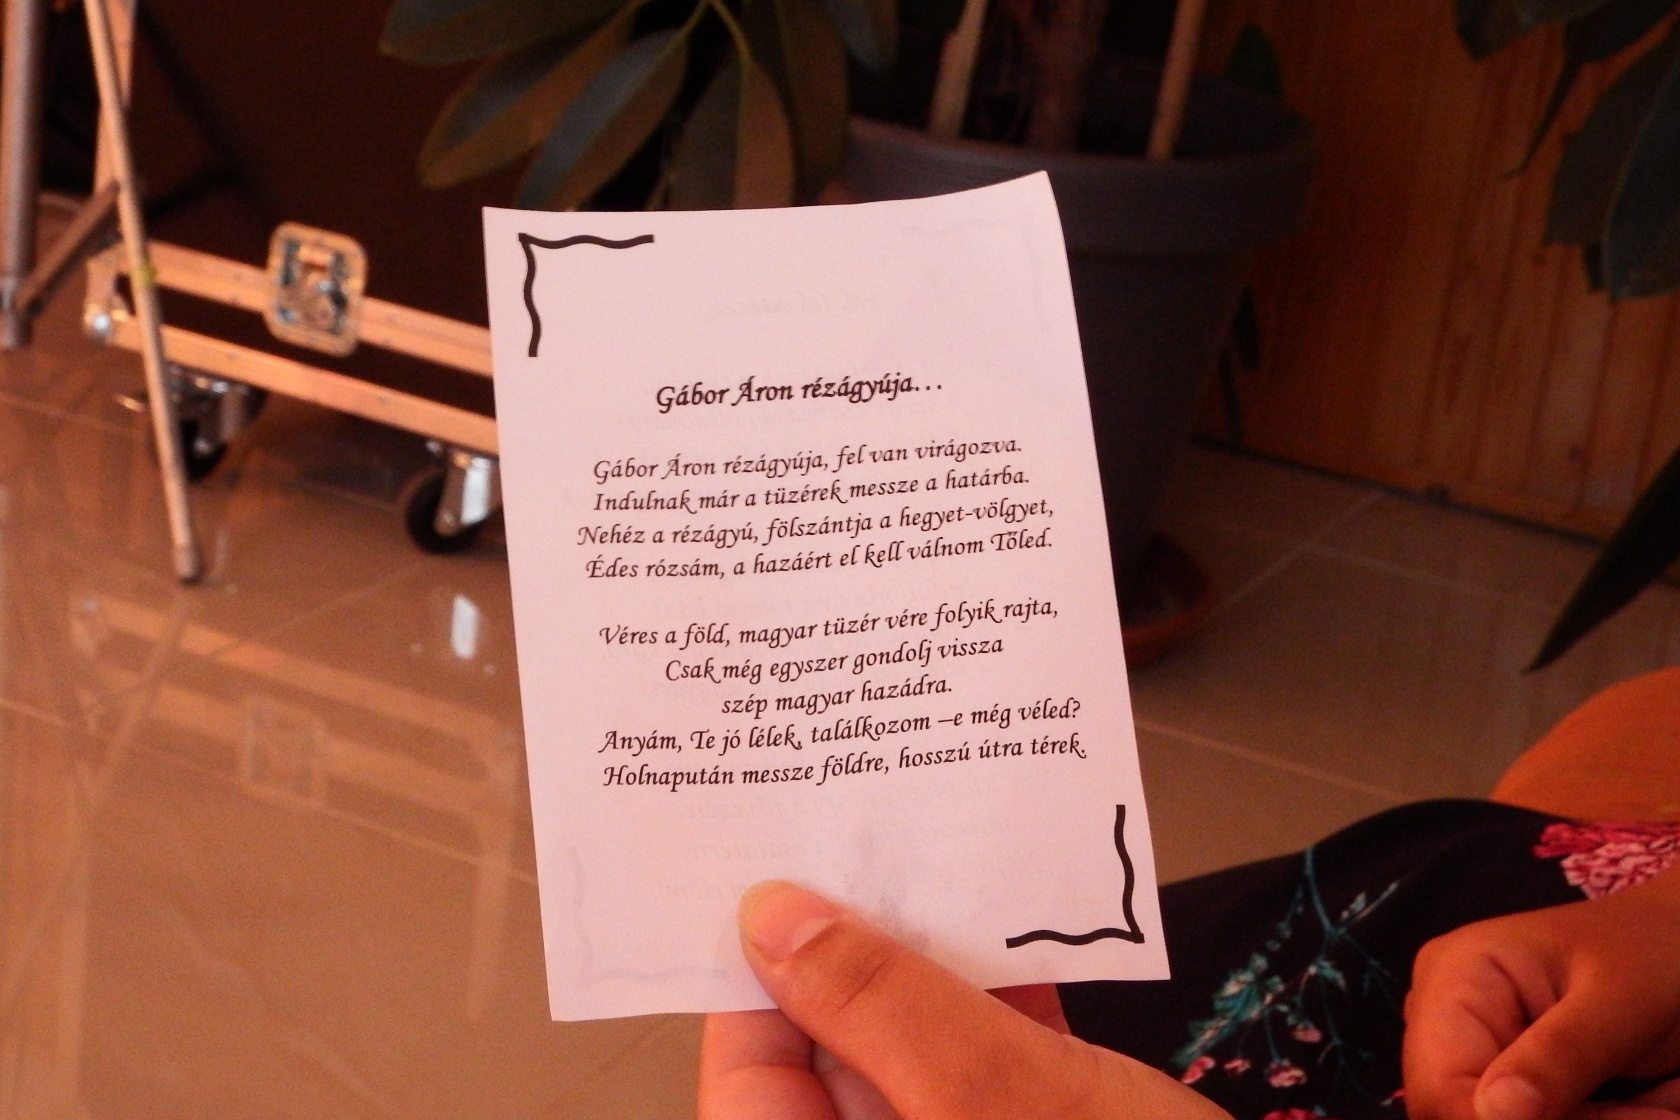 Gábor Áron rézágyúja...
Gábor Áron rézágyúja, fel van virágozva.
Indulnak már a tüzérek messze a határba.
Nehéz a rézágyú, fölszántja a hegyet-völgyet,
Édes rózsám, a hazáért el kell válnom Tőled.
Véres a föld, magyar tüzér vére folyik rajta,
Csak még egyszer gondolj vissza
szép magyar hazádra.
Anyám, Te jó lélek, találkozom –e még véled?
Holnapután messze földre, hosszú útra térek.